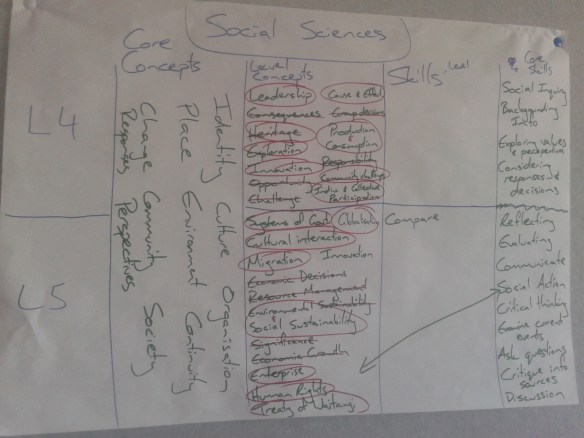 Social Sciences
Core
Concepts
Level
Concepts
Skills Level
Core
Skills
L4
L5
Identity Culture Organisation
Place Environment Continuity
Change Community Society
Responses Perspectives
Leadership Cause & Effect
Consequences
Heritage Production
& Consumption
Exploration
Innovation Responsibility
Opportunity
Challenge
Participation
Systems of Govt Globalisation
Cultural interaction
Migration Innovation
Economic Decisions
Resource Management
Environmental Sustainability
Social Sustainability
Significance
Economic Growth
Enterprise
Human Rights
Treaty of Waitangi
Compare
Social Inquiry
Exploring values
& perspectives
Considering
responses &
decisions
Reflecting
Evaluating
Communicate
Social Action
Critical thinking
events
Ask questions
Critique
sources
Discussion